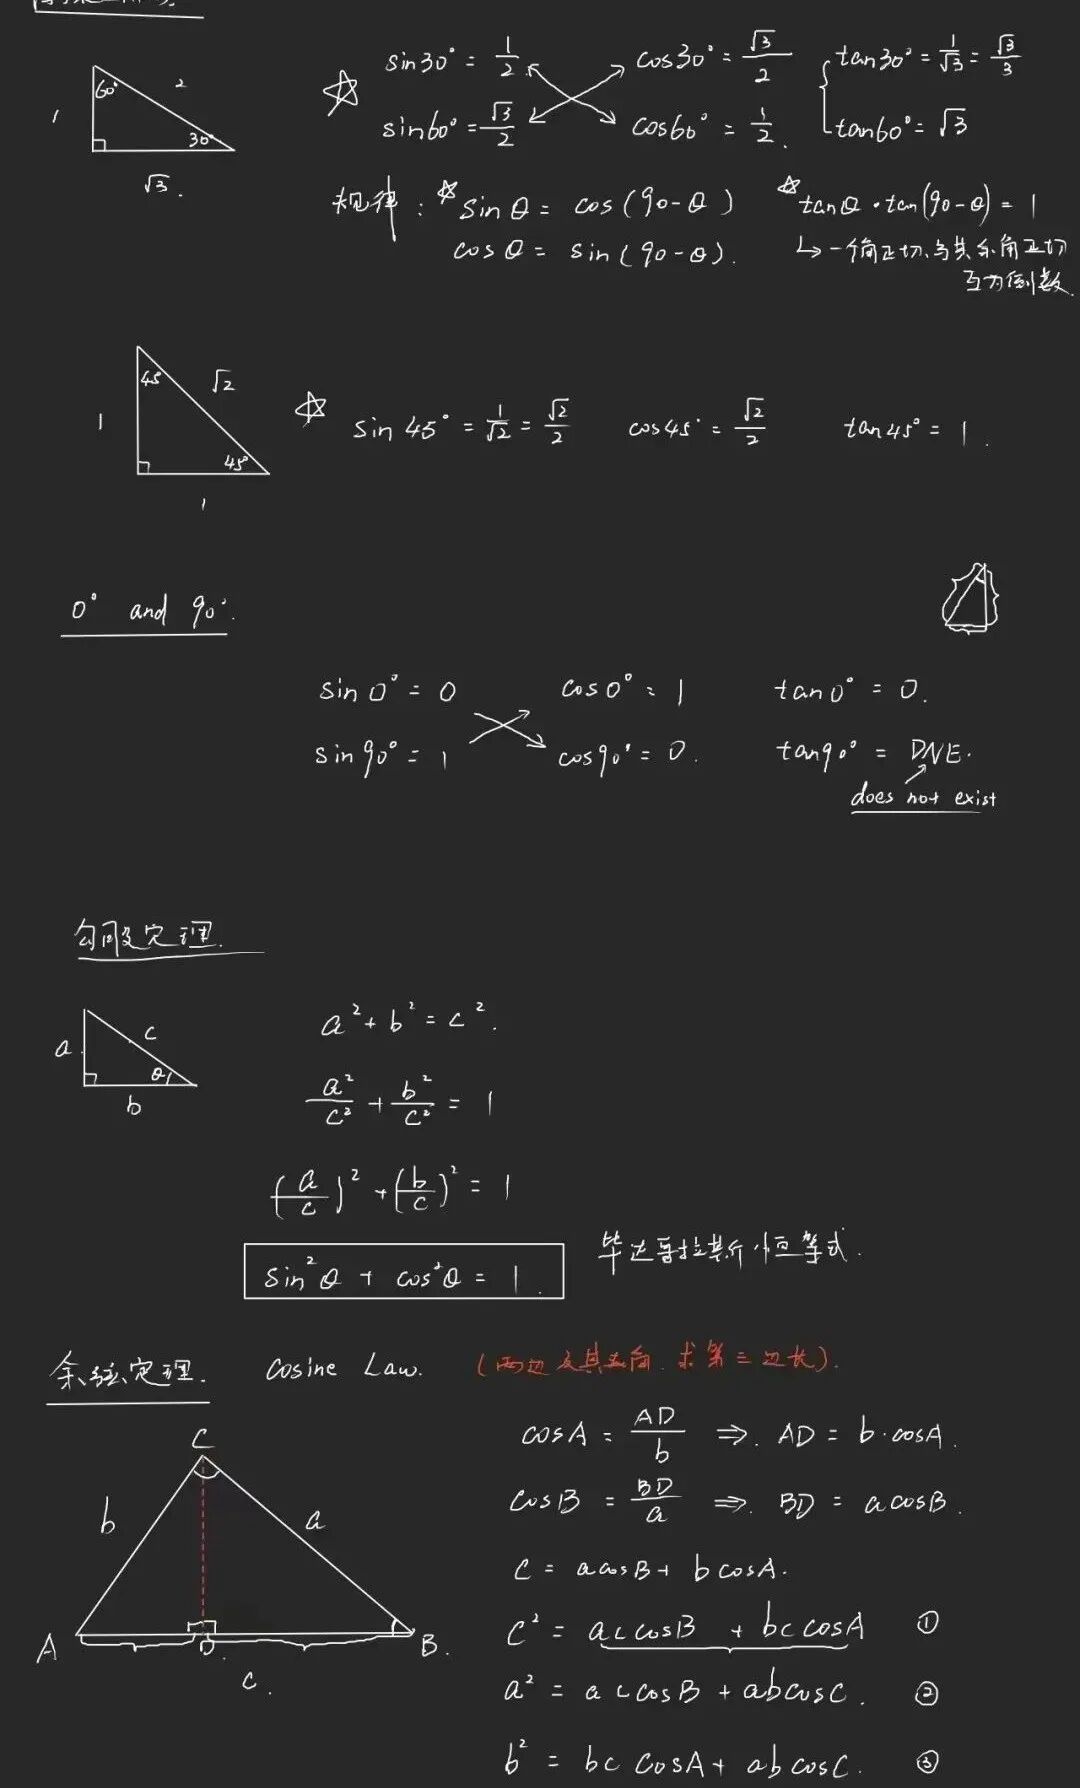 60° 2
1 30°
√3.
☆ sin30° = 1/2 cos30° = √3/2 tan30° = 1/√3 = √3/3
sin60° = √3/2 cos60° = 1/2. tan60° = √3
规律: ☆ sinθ = cos(90-θ) ☆ tanθ·tan(90-θ) = 1
cosθ = sin(90-θ). ↳ 一个角正切与其余角正切
互为倒数.
45° √2
1 45°
1
☆ sin45° = 1/√2 = √2/2 cos45° = √2/2 tan45° = 1.
0° and 90°.
sin0° = 0 cos0° = 1 tan0° = 0.
sin90° = 1 cos90° = 0. tan90° = DNE.
does not exist
勾股定理.
a c θ
b
a² + b² = c².
a²/c² + b²/c² = 1
(a/c)² + (b/c)² = 1
sin²θ + cos²θ = 1. 毕达哥拉斯恒等式.
余弦定理. Cosine Law. (两边及其夹角.求第三边长).
C
b a
A D. B.
c.
cosA = AD/b ⇒. AD = b·cosA.
cosB = BD/a ⇒. BD = a cosB.
c = acosB + bcosA.
c² = accosB + bccosA ①
a² = accosB + abcosC. ②
b² = bc cosA + abcosC. ③